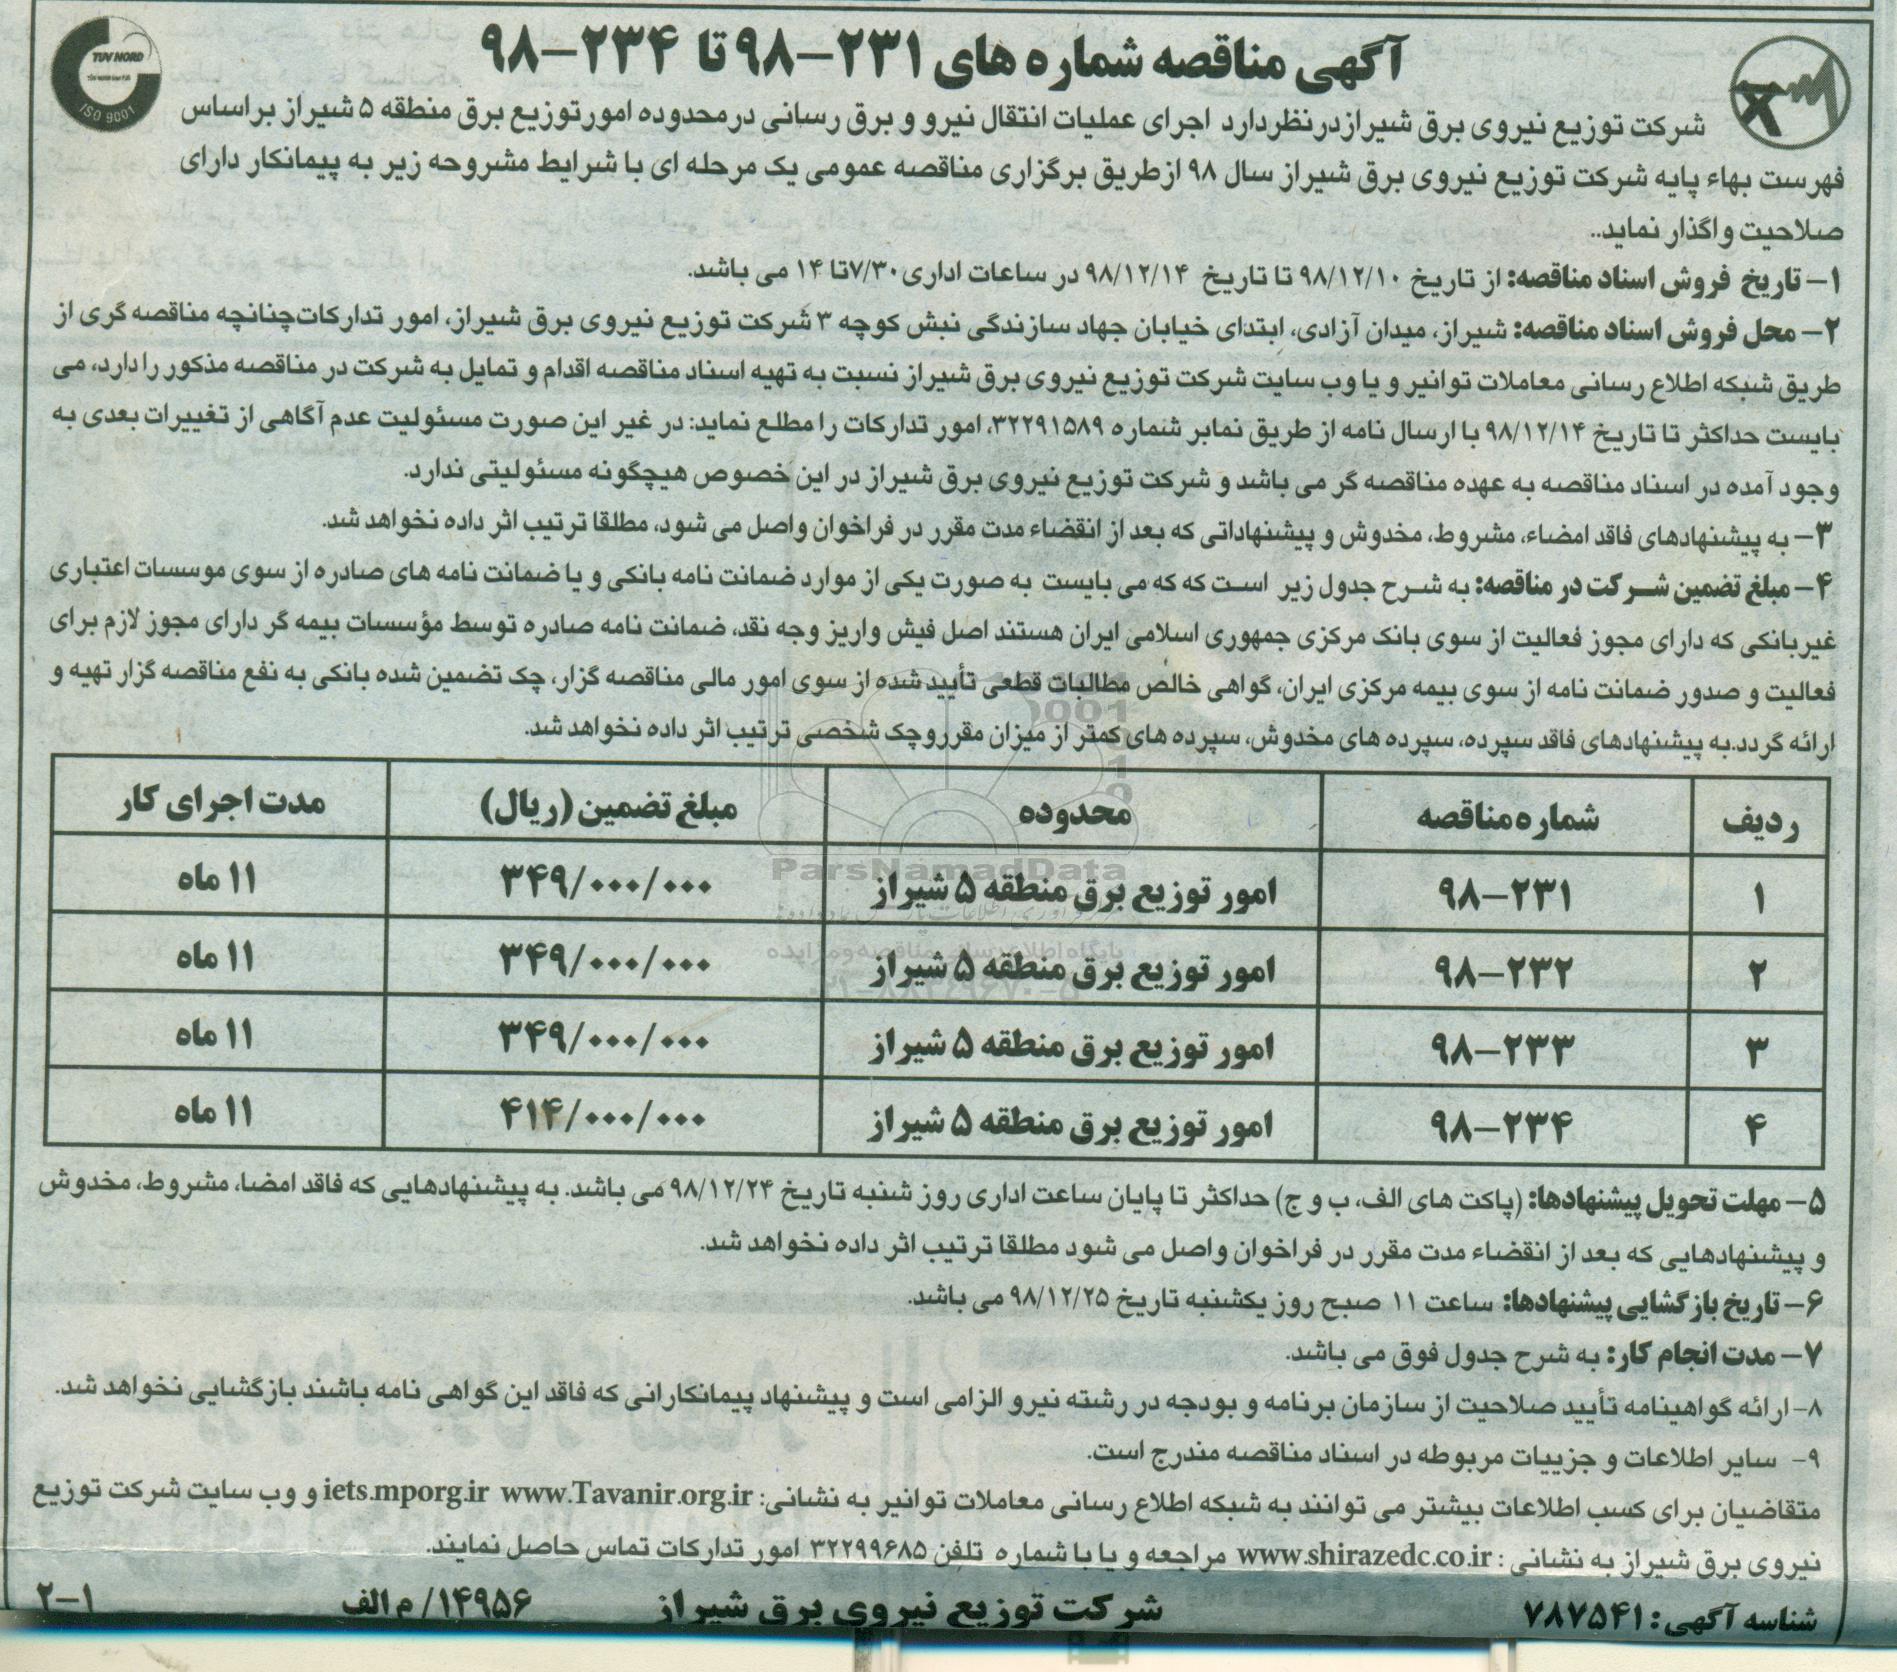 آگهی مناقصه شماره های ۲۳۱-۹۸ تا ۲۳۴-۹۸
TUV NORD
ISO 9001
شرکت توزیع نیروی برق شیراز درنظر دارد اجرای عملیات انتقال نیرو و برق رسانی در محدوده امور توزیع برق منطقه ۵ شیراز براساس
فهرست بهاء پایه شرکت توزیع نیروی برق شیراز سال ۹۸ از طریق برگزاری مناقصه عمومی یک مرحله ای با شرایط مشروحه زیر به پیمانکار دارای
صلاحیت واگذار نماید..
۱- تاریخ فروش اسناد مناقصه: از تاریخ ۹۸/۱۲/۱۰ تا تاریخ ۹۸/۱۲/۱۴ در ساعات اداری ۷/۳۰ تا ۱۴ می باشد.
۲- محل فروش اسناد مناقصه: شیراز، میدان آزادی، ابتدای خیابان جهاد سازندگی نبش کوچه ۳ شرکت توزیع نیروی برق شیراز، امور تدارکات چنانچه مناقصه گری از
طریق شبکه اطلاع رسانی معاملات توانیر و یا وب سایت شرکت توزیع نیروی برق شیراز نسبت به تهیه اسناد مناقصه اقدام و تمایل به شرکت در مناقصه مذکور را دارد، می
بایست حداکثر تا تاریخ ۹۸/۱۲/۱۴ با ارسال نامه از طریق نمابر شماره ۳۲۲۹۱۵۸۹، امور تدارکات را مطلع نماید: در غیر این صورت مسئولیت عدم آگاهی از تغییرات بعدی به
وجود آمده در اسناد مناقصه به عهده مناقصه گر می باشد و شرکت توزیع نیروی برق شیراز در این خصوص هیچگونه مسئولیتی ندارد.
۳- به پیشنهادهای فاقد امضاء، مشروط، مخدوش و پیشنهاداتی که بعد از انقضاء مدت مقرر در فراخوان واصل می شود، مطلقا ترتیب اثر داده نخواهد شد.
۴- مبلغ تضمین شرکت در مناقصه: به شرح جدول زیر است که که می بایست به صورت یکی از موارد ضمانت نامه بانکی و یا ضمانت نامه های صادره از سوی موسسات اعتباری
غیربانکی که دارای مجوز فعالیت از سوی بانک مرکزی جمهوری اسلامی ایران هستند اصل فیش واریز وجه نقد، ضمانت نامه صادره توسط مؤسسات بیمه گر دارای مجوز لازم برای
فعالیت و صدور ضمانت نامه از سوی بیمه مرکزی ایران، گواهی خالص مطالبات قطعی تأیید شده از سوی امور مالی مناقصه گزار، چک تضمین شده بانکی به نفع مناقصه گزار تهیه و
ارائه گردد.به پیشنهادهای فاقد سپرده، سپرده های مخدوش، سپرده های کمتر از میزان مقرر و چک شخصی ترتیب اثر داده نخواهد شد.
ردیف شماره مناقصه محدوده مبلغ تضمین (ریال) مدت اجرای کار
۱ ۹۸-۲۳۱ امور توزیع برق منطقه ۵ شیراز ۳۴۹/۰۰۰/۰۰۰ ۱۱ ماه
۲ ۹۸-۲۳۲ امور توزیع برق منطقه ۵ شیراز ۳۴۹/۰۰۰/۰۰۰ ۱۱ ماه
۳ ۹۸-۲۳۳ امور توزیع برق منطقه ۵ شیراز ۳۴۹/۰۰۰/۰۰۰ ۱۱ ماه
۴ ۹۸-۲۳۴ امور توزیع برق منطقه ۵ شیراز ۴۱۴/۰۰۰/۰۰۰ ۱۱ ماه
ParsNamadData
پایگاه اطلاع رسانی مناقصه و مزایده
۰۲۱-۸۸۳۴۹۶۷۰-۵
۵- مهلت تحویل پیشنهادها: (پاکت های الف، ب و ج) حداکثر تا پایان ساعت اداری روز شنبه تاریخ ۹۸/۱۲/۲۴ می باشد. به پیشنهادهایی که فاقد امضا، مشروط، مخدوش
و پیشنهادهایی که بعد از انقضاء مدت مقرر در فراخوان واصل می شود مطلقا ترتیب اثر داده نخواهد شد.
۶- تاریخ بازگشایی پیشنهادها: ساعت ۱۱ صبح روز یکشنبه تاریخ ۹۸/۱۲/۲۵ می باشد.
۷- مدت انجام کار: به شرح جدول فوق می باشد.
۸- ارائه گواهینامه تأیید صلاحیت از سازمان برنامه و بودجه در رشته نیرو الزامی است و پیشنهاد پیمانکارانی که فاقد این گواهی نامه باشند بازگشایی نخواهد شد.
۹- سایر اطلاعات و جزییات مربوطه در اسناد مناقصه مندرج است.
متقاضیان برای کسب اطلاعات بیشتر می توانند به شبکه اطلاع رسانی معاملات توانیر به نشانی: iets.mporg.ir www.Tavanir.org.ir و وب سایت شرکت توزیع
نیروی برق شیراز به نشانی : www.shirazedc.co.ir مراجعه و یا با شماره تلفن ۳۲۲۹۹۶۸۵ امور تدارکات تماس حاصل نمایند.
شناسه آگهی: ۷۸۷۵۴۱ شرکت توزیع نیروی برق شیراز ۱۴۹۵۶/ م الف ۲-۱